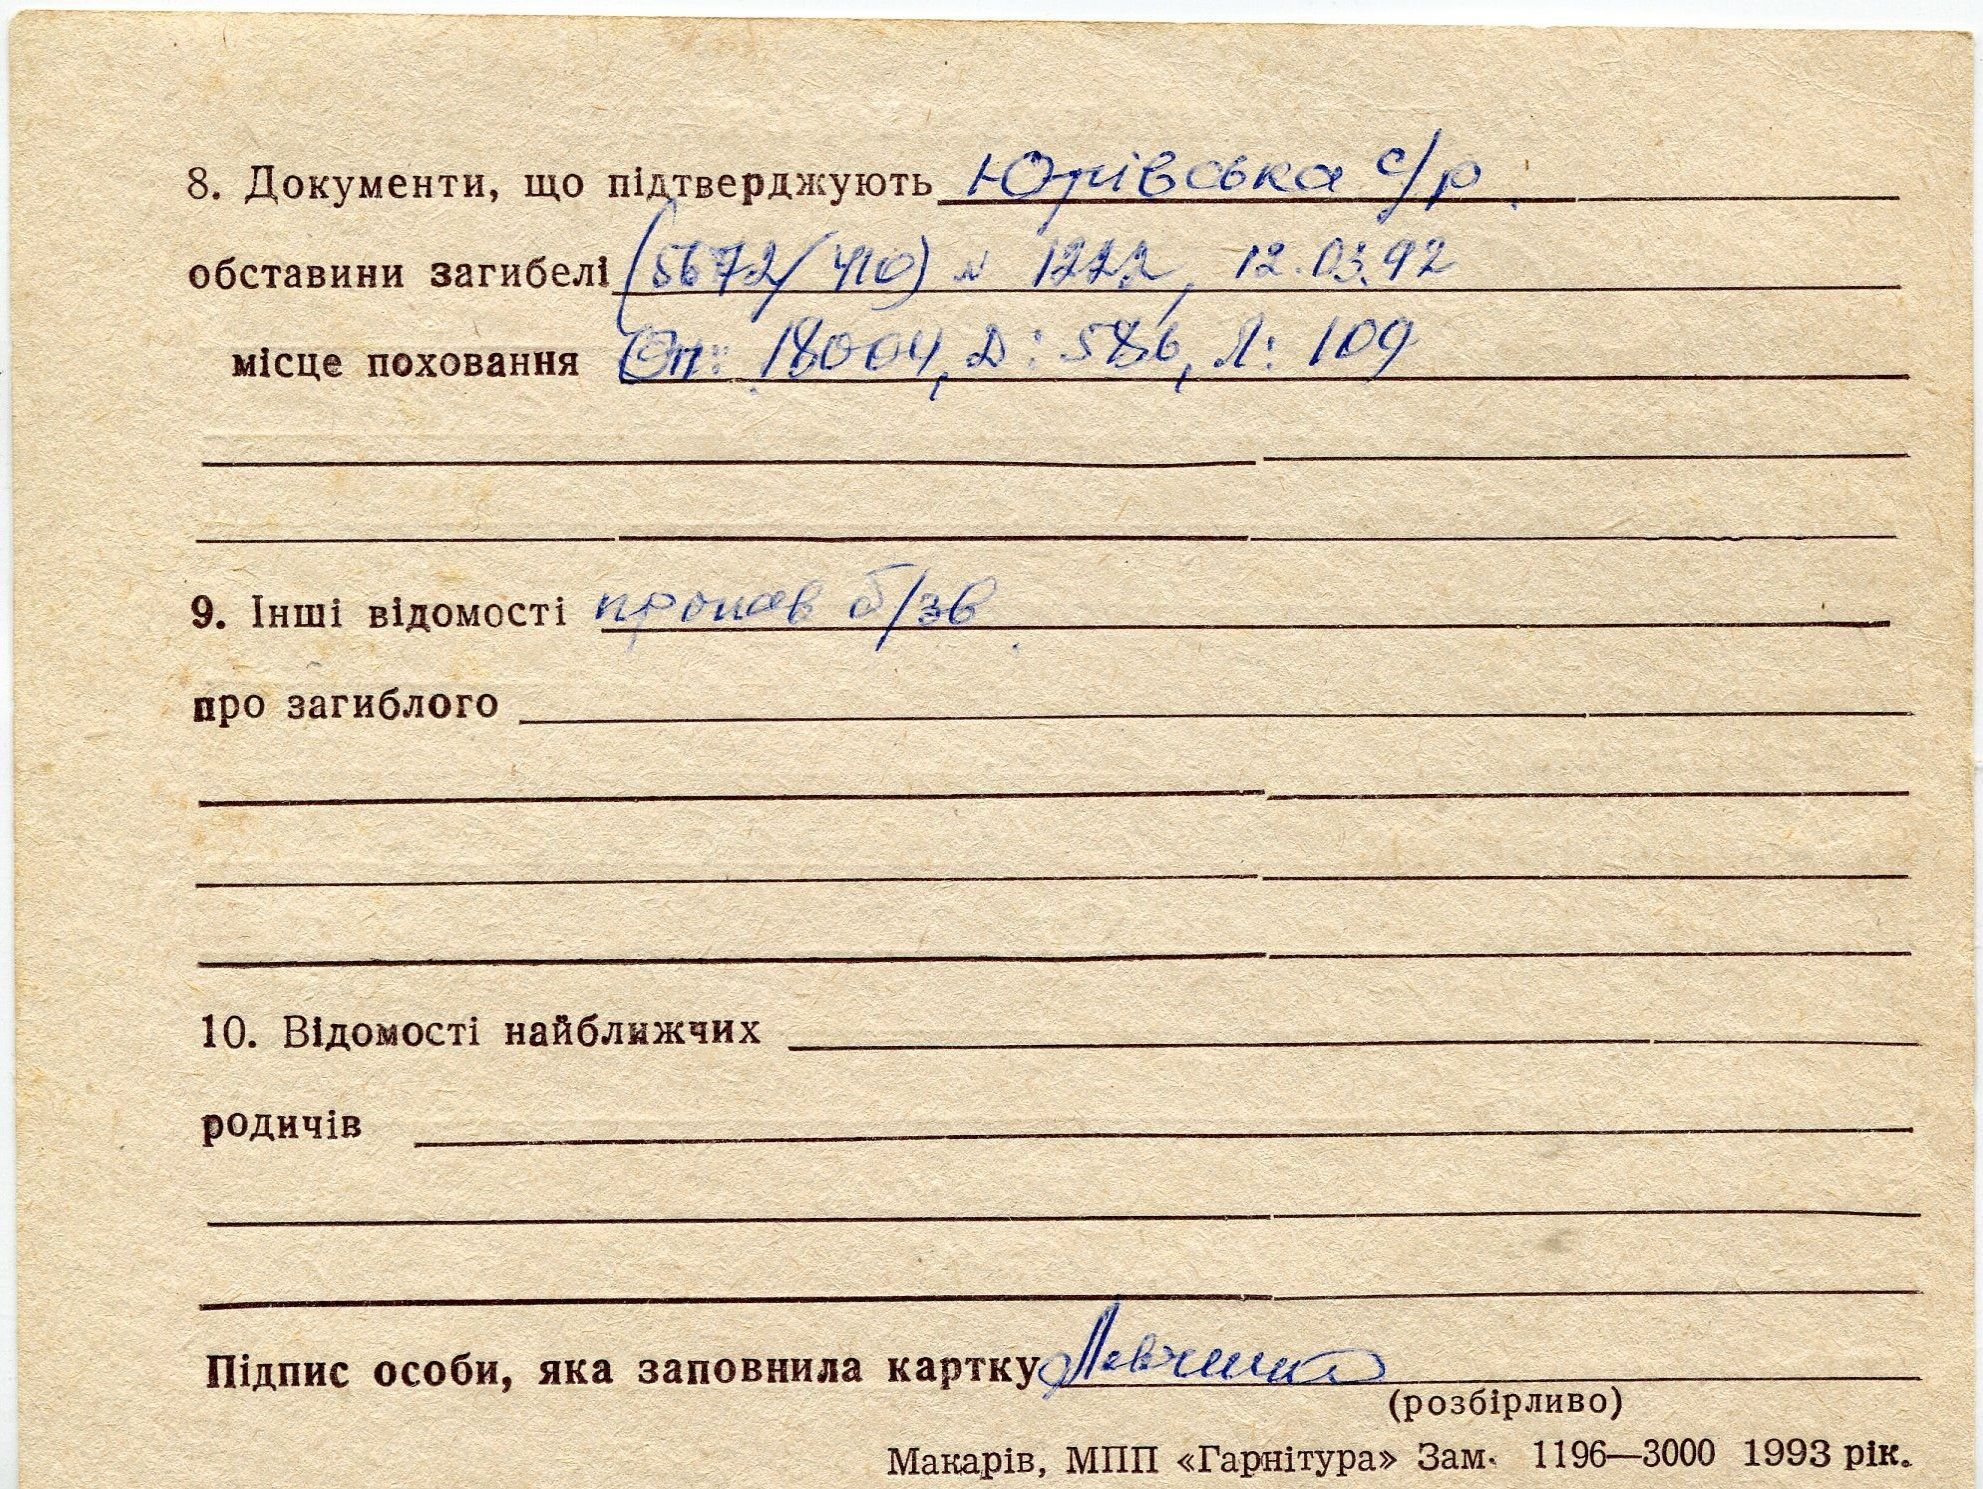 8. Документи, що підтверджують Юрівська с/р.
обставини загибелі (5672/410) № 1222, 12.03.92
місце поховання Оп: 18004, Д: 586, Л: 109
9. Інші відомості пропав б/зв.
про загиблого
10. Відомості найближчих
родичів
Підпис особи, яка заповнила картку
(розбірливо)
Макарів, МПП «Гарнітура» Зам. 1196—3000 1993 рік.